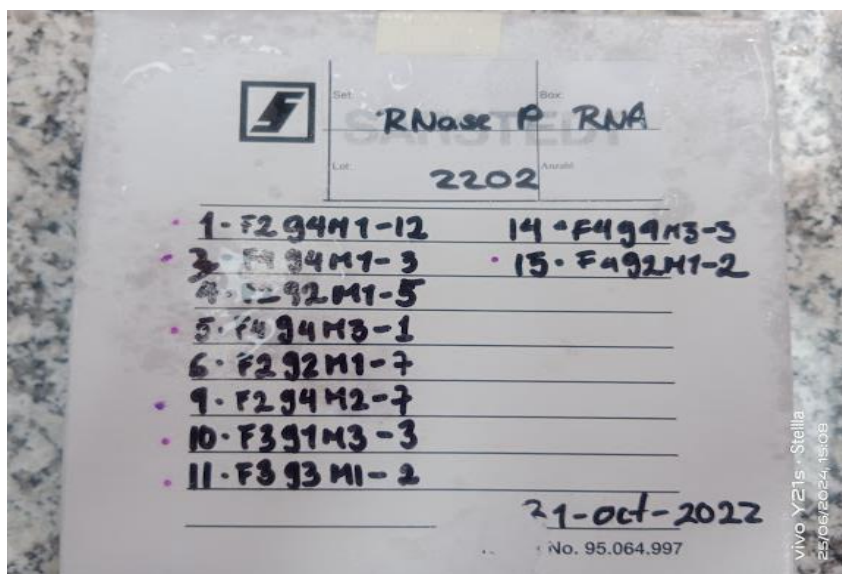 Set:
Box:
SARSTEDT
RNase P RNA
Lot:
Anzahl
2202
1-F2g4M1-12
3 F4g4M1-3
4-F2g2M1-5
5-F4g4M3-1
6-F2g2M1-7
9-F2g4M2-7
10-F3g1M3-3
11-F3g3M1-2
14-F4g4M3-3
15-F4g2M1-2
21-oct-2022
No. 95.064.997
vivo Y21s · Stellla
25/06/2024, 15:08